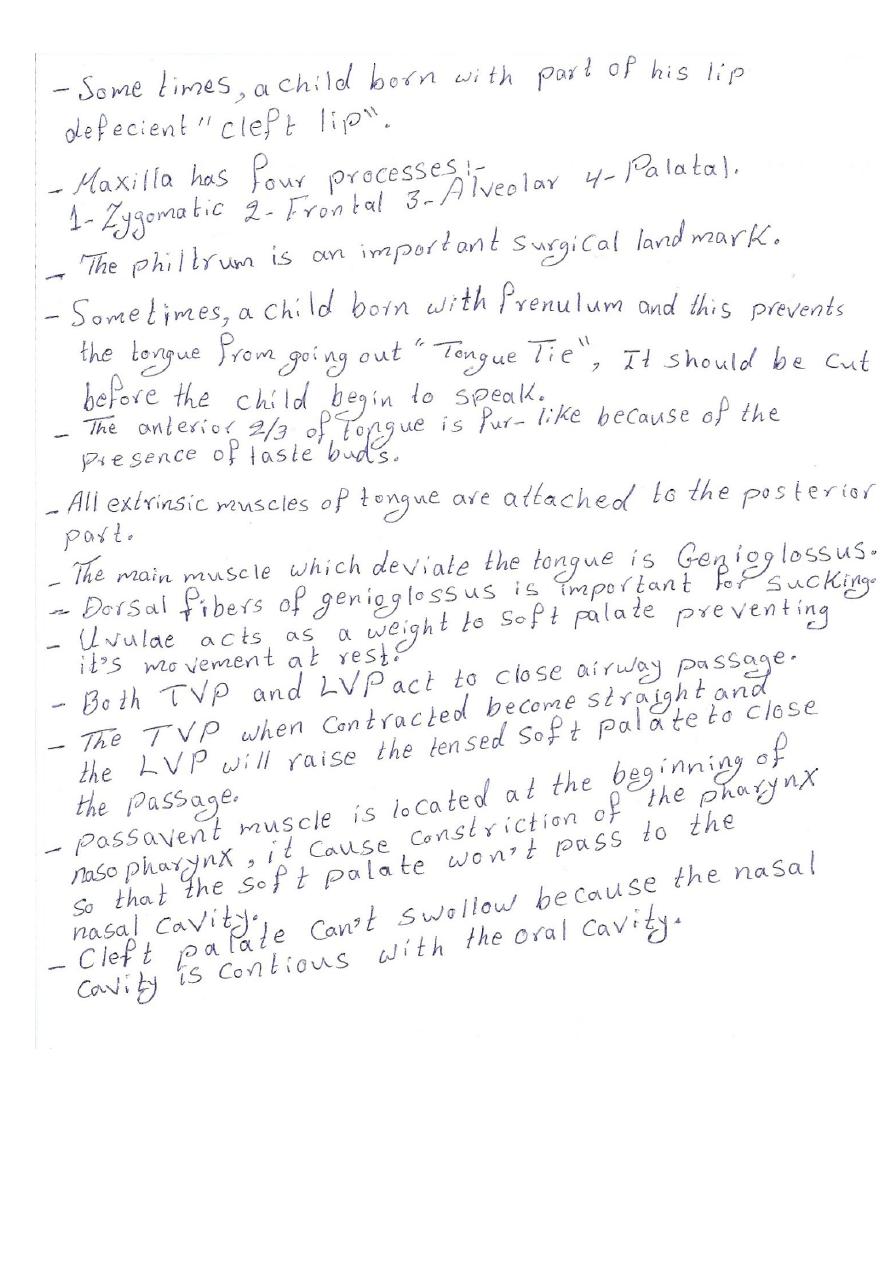 - Some times, a child born with part of his lip
defecient " cleft lip".
- Maxilla has four processes:-
1- Zygomatic 2- Frontal 3- Alveolar 4- Palatal.
- The philtrum is an important surgical landmark.
- Sometimes, a child born with frenulum and this prevents
the tongue from going out " Tongue Tie", It should be cut
before the child begin to speak.
- The anterior 2/3 of Tongue is fur-like because of the
presence of taste buds.
- All extrinsic muscles of tongue are attached to the posterior
part.
- The main muscle which deviate the tongue is Genioglossus.
- Dorsal fibers of genioglossus is important for sucking.
- Uvulae acts as a weight to soft palate preventing
it's movement at rest.
- Both TVP and LVP act to close airway passage.
- The TVP when contracted become straight and
the LVP will raise the tensed soft palate to close
the passage.
- Passavent muscle is located at the beginning of
nasopharynx, it cause constriction of the pharynx
so that the soft palate won't pass to the
nasal cavity.
- Cleft palate can't swollow because the nasal
cavity is contious with the oral cavity.